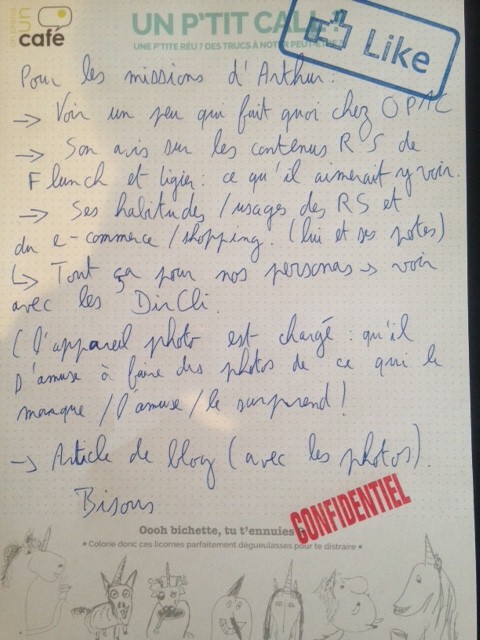 UN
café
UN P'TIT CALL ?
UNE P'TITE RÉU ? DES TRUCS À NOTER PEUT-ÊTRE
Like
Pour les missions d'Arthur :
→ Voir un peu qui fait quoi chez OPAC
→ Son avis sur les contenus RS de
Flunch et Ligier : ce qu'il aimerait y voir.
→ Ses habitudes / usages des RS et
du e-commerce / shopping. (lui et ses potes)
↳ Tout ça pour nos personas → voir
avec les DirCli.
(l'appareil photo est chargé : qu'il
s'amuse à faire des photos de ce qui le
marque / l'amuse / le surprend !
→ Article de blog (avec les photos).
Bisous
CONFIDENTIEL
Oooh bichette, tu t'ennuies
• Colorie donc ces licornes parfaitement dégueulasses pour te distraire •